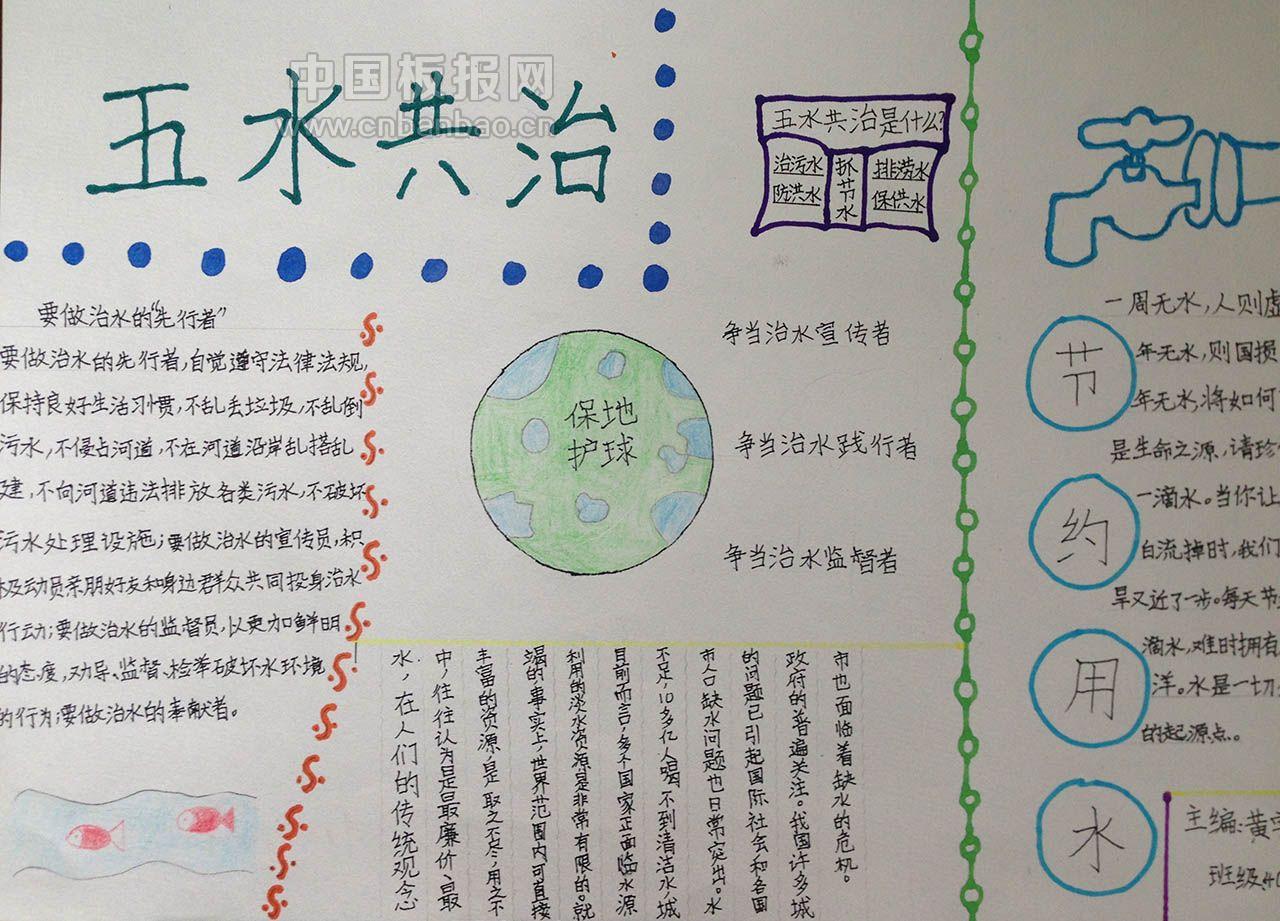 中国板报网
www.cnbanbao.cn
五水共治
五水共治是什么?
治污水
防洪水
抓节水
排涝水
保供水
要做治水的"先行者"
要做治水的先行者,自觉遵守法律法规,
保持良好生活习惯,不乱丢垃圾,不乱倒
污水,不侵占河道,不在河道沿岸乱搭乱
建,不向河道违法排放各类污水,不破坏
污水处理设施;要做治水的宣传员,积
极动员亲朋好友和身边群众共同投身治水
行动;要做治水的监督员,以更加鲜明
的态度,劝导、监督、检举破坏水环境
的行为;要做治水的奉献者。
保地
护球
争当治水宣传者
争当治水践行者
争当治水监督者
水,在人们的传统观念
中,往往认为是最廉价、最
丰富的资源,是取之不尽,用之不
竭的事实上,世界范围内可直接
利用的淡水资源是非常有限的。就
目前而言,多个国家正面临水源
不足,10多亿人喝不到清洁水,城
市人口缺水问题也日常突出。水
的问题已引起国际社会和各国
政府的普遍关注。我国许多城
市也面临着缺水的危机。
节
约
用
水
一周无水,人则虚
年无水,则国损
年无水,将如何
是生命之源,请珍
一滴水。当你让
白流掉时,我们
旱又近了一步。每天节
滴水,难时拥有
洋。水是一切
的起源点。
主编:黄
班级:40